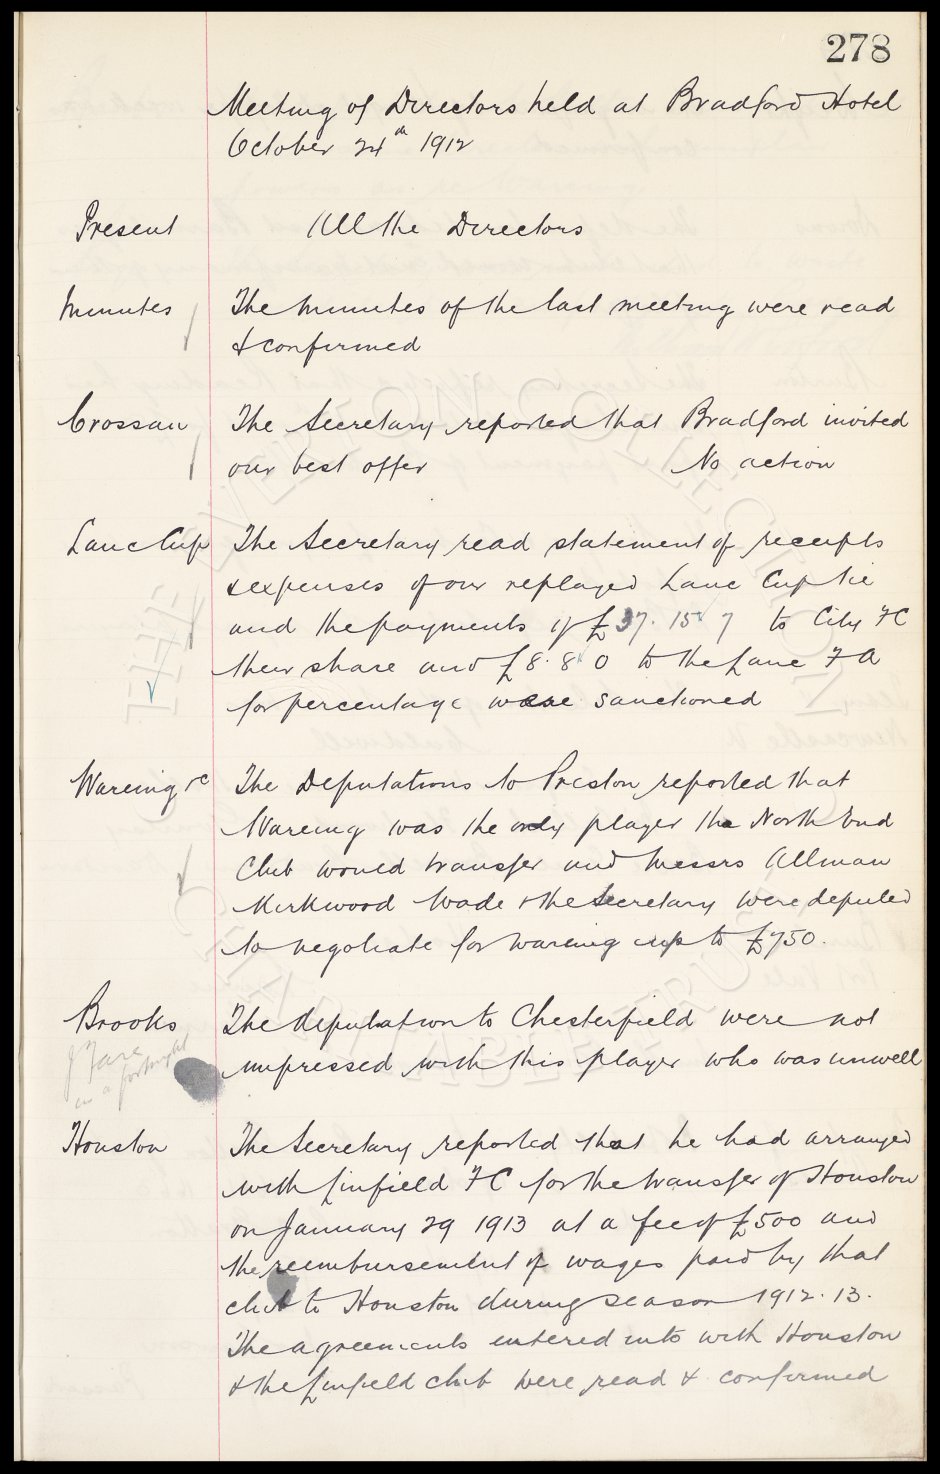 278
Meeting of Directors held at Bradford Hotel
October 24th 1912
Present All the Directors
Minutes The minutes of the last meeting were read
& confirmed
Crossan The Secretary reported that Bradford invited
our best offer No action
Lanc Cup The Secretary read statement of receipts
& expenses of our replayed Lanc Cup tie
and the payments of £37. 15 7 to City FC
their share and £8. 8. 0 to the Lanc F A
for percentage were sanctioned
Wareing &c The Deputations to Preston reported that
Wareing was the only player the North End
Club would transfer and Messrs Allman
Kirkwood Wade & the Secretary were deputed
to negotiate for Wareing up to £750.
Brooks The deputation to Chesterfield were not
impressed with this player who was unwell
in a fortnight
Houston The Secretary reported that he had arranged
with Linfield FC for the transfer of Houston
on January 29 1913 at a fee of £500 and
the reimbursement of wages paid by that
club to Houston during season 1912. 13.
The agreements entered into with Houston
& the Linfield club were read & confirmed